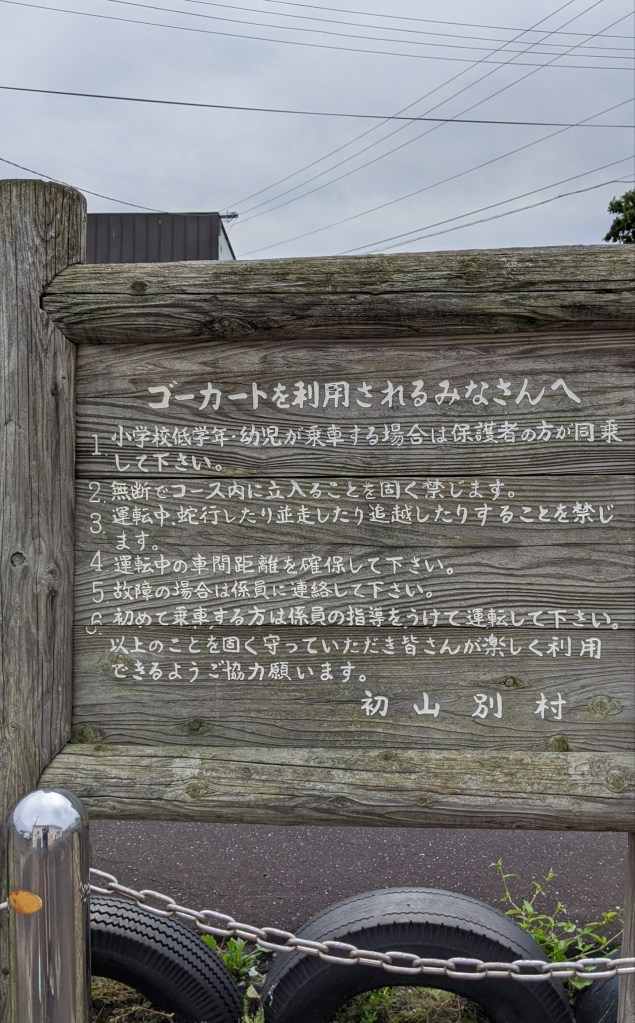 ゴーカートを利用されるみなさんへ
1. 小学校低学年・幼児が乗車する場合は保護者の方が同乗
して下さい。
2. 無断でコース内に立入ることを固く禁じます。
3. 運転中、蛇行したり並走したり追越したりすることを禁じ
ます。
4. 運転中の車間距離を確保して下さい。
5. 故障の場合は係員に連絡して下さい。
6. 初めて乗車する方は係員の指導をうけて運転して下さい。
以上のことを固く守っていただき皆さんが楽しく利用
できるようご協力願います。
初山別村